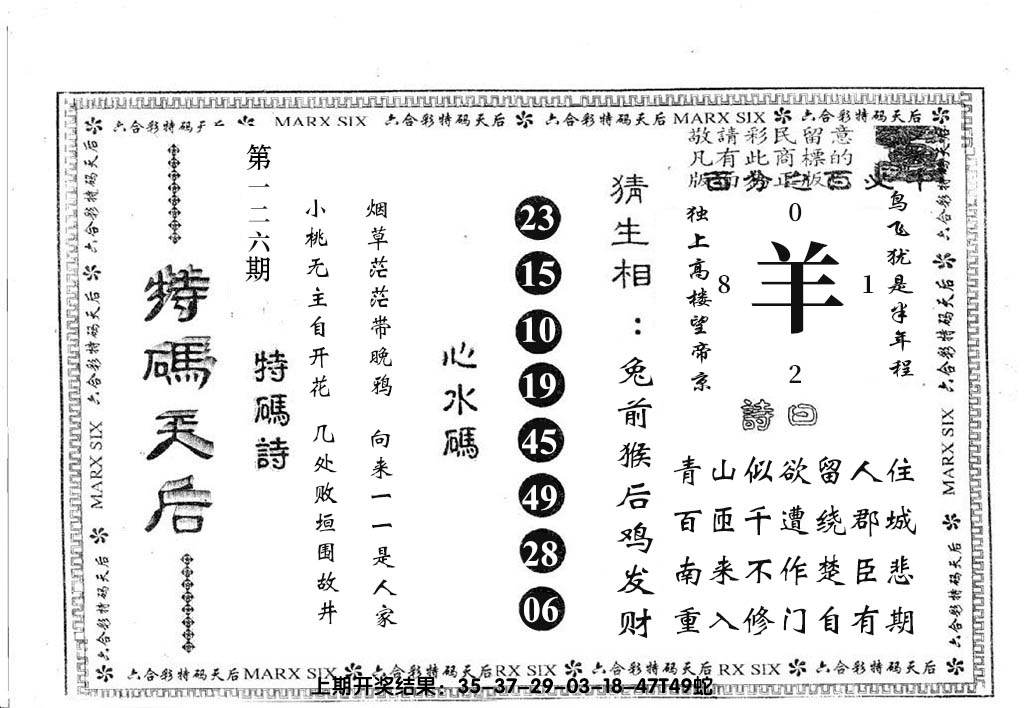 六合彩特码天后 MARX SIX 六合彩特码天后 六合彩特码天后 MARX SIX 六合彩特码天后
敬請彩民留意
凡有此商標的
版面均正版
特碼天后
第一二六期
特碼詩
小桃无主自开花
烟草茫茫带晚鸦
几处败垣围故井
向来一一是人家
心水碼
23
15
10
19
45
49
28
06
猜生相：兔前猴后鸡发财
独上高楼望帝京
鸟飞犹是半年程
0
8 羊 1
2
詩曰
青山似欲留人住
百匝千遭绕郡城
南来不作楚臣悲
重入修门自有期
六合彩特码天后 MARX SIX 六合彩特码天后
六合彩特码天后 MARX SIX 六合彩特码天后
六合彩特码天后 MARX SIX 六合彩特码天后RX SIX 六合彩特码天后 RX SIX 六合彩特码天后
上期开奖结果：35-37-29-03-18-47T49蛇